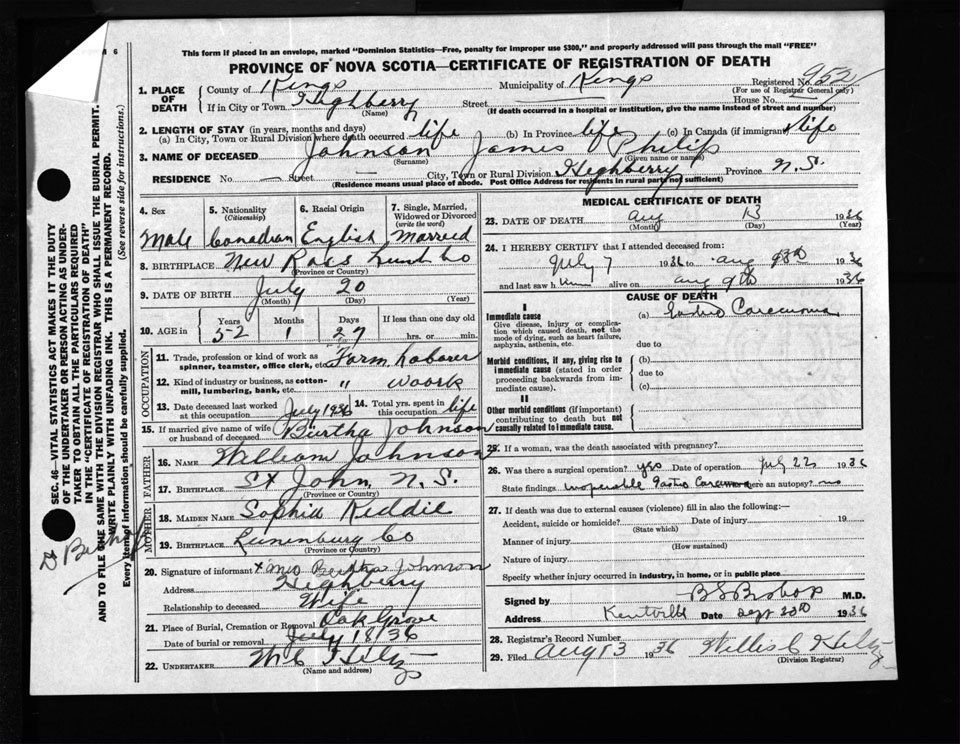 This form if placed in an envelope, marked "Dominion Statistics—Free, penalty for improper use $300," and properly addressed will pass through the mail "FREE"
PROVINCE OF NOVA SCOTIA—CERTIFICATE OF REGISTRATION OF DEATH
1. PLACE OF DEATH County of Kings Municipality of Kings Registered No. 952
(For use of Registrar General only)
If in City or Town Highberry Street — House No. —
(Name) (If death occurred in a hospital or institution, give the name instead of street and number)
2. LENGTH OF STAY (in years, months and days)
(a) In City, Town or Rural Division where death occurred life (b) In Province life (c) In Canada (if immigrant) life
3. NAME OF DECEASED Johnson James Philip
(Surname) (Given name or names)
RESIDENCE No. — Street — City, Town or Rural Division Highberry Province N.S.
(Residence means usual place of abode. Post Office Address for residents in rural parts not sufficient)
4. Sex Male
5. Nationality (Citizenship) Canadian
6. Racial Origin English
7. Single, Married, Widowed or Divorced (write the word) Married
8. BIRTHPLACE New Ross Lunb Co
(Province or Country)
9. DATE OF BIRTH July 20
(Month) (Day) (Year)
10. AGE in Years 52 Months 1 Days 27 If less than one day old hrs. or min.
OCCUPATION
11. Trade, profession or kind of work as spinner, teamster, office clerk, etc. Farm Laborer
12. Kind of industry or business, as cotton-mill, lumbering, bank, etc. " woork
13. Date deceased last worked at this occupation July 1936
14. Total yrs. spent in this occupation life
15. If married give name of wife or husband of deceased Burtha Johnson
FATHER
16. NAME William Johnson
17. BIRTHPLACE St John, N.S.
(Province or Country)
MOTHER
18. MAIDEN NAME Sophia Keddie
19. BIRTHPLACE Lunenburg Co
(Province or Country)
20. Signature of informant x Mrs Bertha Johnson
Address Highberry
Relationship to deceased Wife
21. Place of Burial, Cremation or Removal Oak Grove
Date of burial or removal July 18/36
22. UNDERTAKER W.C Hiltz
(Name and address)
MEDICAL CERTIFICATE OF DEATH
23. DATE OF DEATH Aug 13 1936
(Month) (Day) (Year)
24. I HEREBY CERTIFY that I attended deceased from:
July 7 1936 to Aug 13th 1936
and last saw him alive on Aug 9th 1936
CAUSE OF DEATH
I
Immediate cause (a) Gastric Carcinoma
Give disease, injury or complication which caused death, not the mode of dying, such as heart failure, asphyxia, asthenia, etc.
due to
Morbid conditions, if any, giving rise to immediate cause (stated in order proceeding backwards from immediate cause).
(b)
due to
(c)
II
Other morbid conditions (if important) contributing to death but not causally related to immediate cause.
25. If a woman, was the death associated with pregnancy?
26. Was there a surgical operation? yes Date of operation July 22 1936
State findings inoperable gastric Carcinoma Was there an autopsy? no
27. If death was due to external causes (violence) fill in also the following:—
Accident, suicide or homicide? Date of injury 19
(State which)
Manner of injury
(How sustained)
Nature of injury
Specify whether injury occurred in industry, in home, or in public place
Signed by B S Bishop M.D.
Address Kentville Date Sept 23rd 1936
28. Registrar's Record Number
29. Filed Aug 13 1936 Willis C Hiltz
(Division Registrar)
SEC. 46—VITAL STATISTICS ACT MAKES IT THE DUTY
OF THE UNDERTAKER OR PERSON ACTING AS UNDER-
TAKER TO OBTAIN ALL THE PARTICULARS REQUIRED
IN THE "CERTIFICATE OF REGISTRATION OF DEATH"
AND TO FILE THE SAME WITH THE DIVISION REGISTRAR WHO SHALL ISSUE THE BURIAL PERMIT.
WRITE PLAINLY WITH UNFADING INK. THIS IS A PERMANENT RECORD.
Every item of information should be carefully supplied. (See reverse side for instructions.)
Dr Bishop